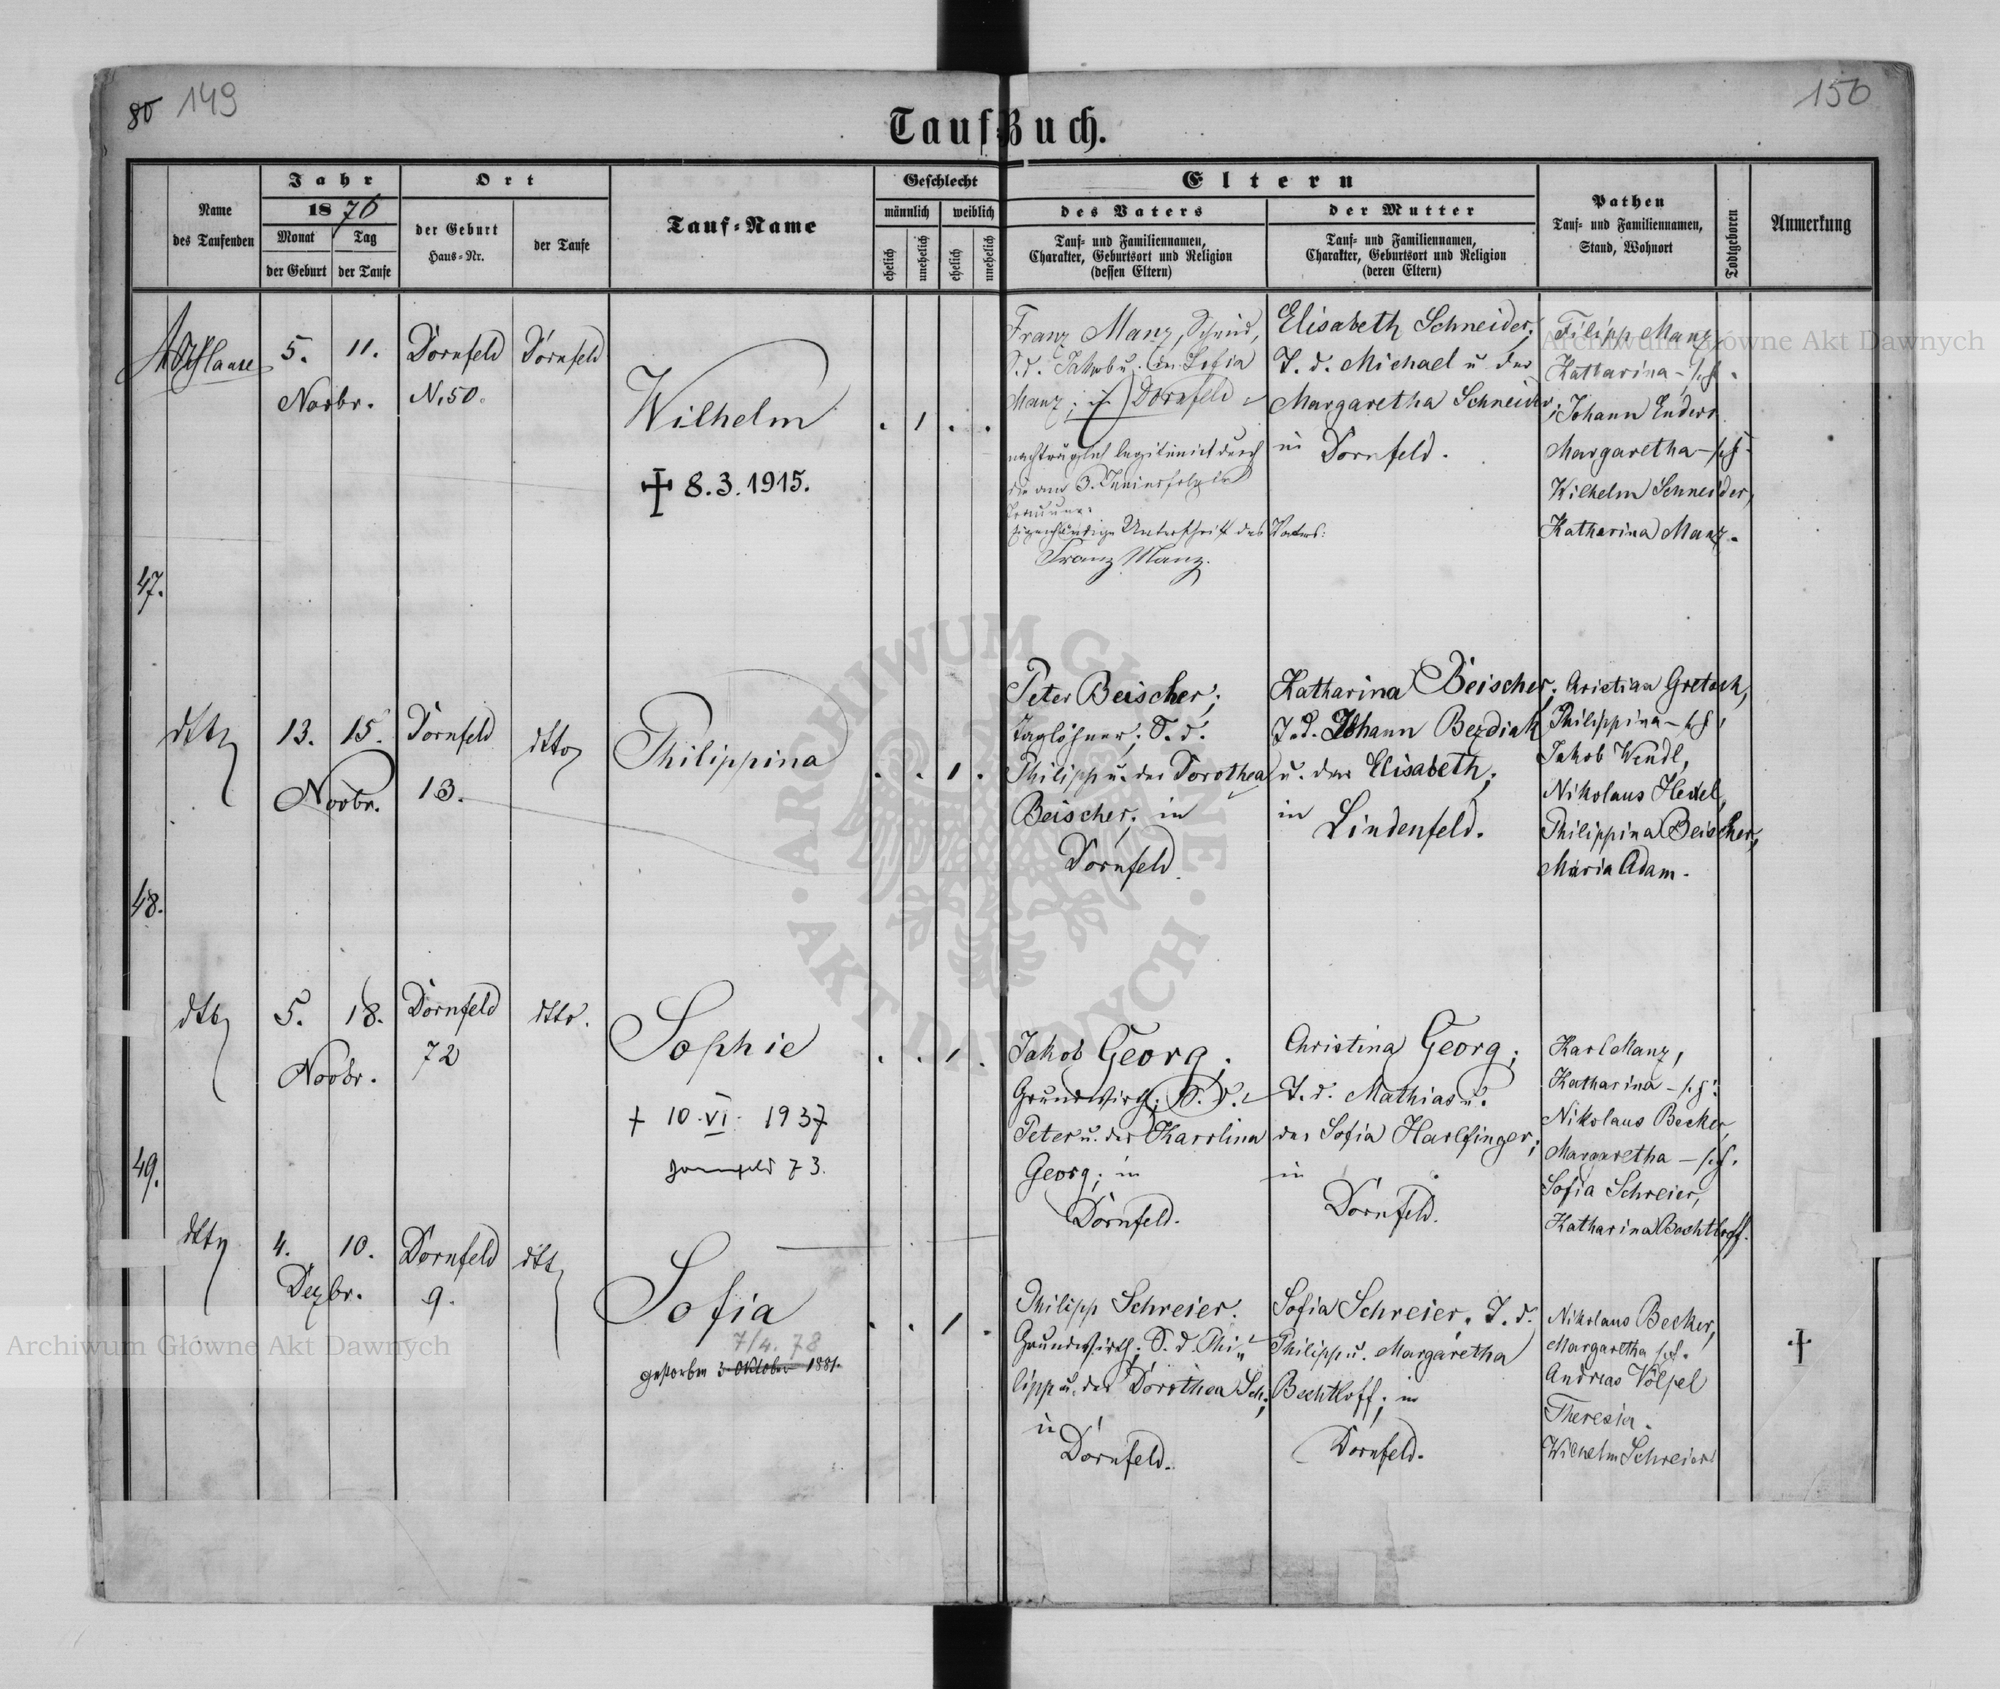 80 149
150
Tauf-Buch.
Name des Taufenden
Jahr
1876
Monat der Geburt
Tag der Taufe
Ort
der Geburt Haus-Nr.
der Taufe
Tauf-Name
Geschlecht
männlich
weiblich
ehelich
unehelich
ehelich
unehelich
Eltern
des Vaters
Tauf- und Familiennamen,
Charakter, Geburtsort und Religion
(dessen Eltern)
der Mutter
Tauf- und Familiennamen,
Charakter, Geburtsort und Religion
(deren Eltern)
Pathen
Tauf- und Familiennamen,
Stand, Wohnort
Todtgeboren
Anmerkung
5. 11.
Novbr.
Dornfeld
N. 50.
Dornfeld
Wilhelm
+ 8.3.1915.
. 1 . .
Franz Manz,
S. d. Jakob u. der Sofia
Manz; in Dornfeld
nachträglich legitimirt durch
die am 3. erfolgte
Trauung.
eigenhändige Unterschrift des Vaters:
Franz Manz.
Elisabeth Schneider,
T. d. Michael u. der
Margaretha Schneider;
in Dornfeld.
Filipp Manz
Katharina
Johann Enders
Margaretha
Wilhelm Schneider,
Katharina Manz.
47.
dtto
13. 15.
Novbr.
Dornfeld
13.
dtto
Philippina
. . 1 .
Peter Beischer;
Taglöhner; S. d.
Philipp u. der Dorothea
Beischer; in
Dornfeld.
Katharina Beischer;
T. d. Johann Bezdiak
u. der Elisabeth;
in
Lindenfeld.
Christian Gretsch,
Philippina
Jakob Wendl,
Nikolaus Hexel,
Philippina Beischer,
Maria Adam.
48.
dtto
5. 18.
Novbr.
Dornfeld
72
dtto.
Sophie
. . 1 .
+ 10. VI. 1937
Dornfeld 73.
Jakob Georg;
Grundwirth; S. d.
Peter u. der Karolina
Georg; in
Dornfeld.
Christina Georg;
T. d. Mathias u.
der Sofia Harlfinger;
in
Dornfeld.
Karl Manz,
Katharina
Nikolaus Becker,
Margaretha
Sofia Schreier,
Katharina Bechtloff.
49.
dtto
4. 10.
Dezbr.
Dornfeld
9.
dtto
Sofia
7/4. 78
gestorben 3. Oktober 1881.
. . 1 .
Philipp Schreier.
Grundwirth; S. d. Phi-
lipp u. der Dorothea Sch.;
in
Dornfeld.
Sofia Schreier. T. d.
Philipp u. Margaretha
Bechtloff; in
Dornfeld.
Nikolaus Becker,
Margaretha
Andreas Völpel
Theresia.
Wilhelm Schreier
+
Archiwum Główne Akt Dawnych
Archiwum Główne Akt Dawnych
ARCHIWUM GŁÓWNE · AKT DAWNYCH ·